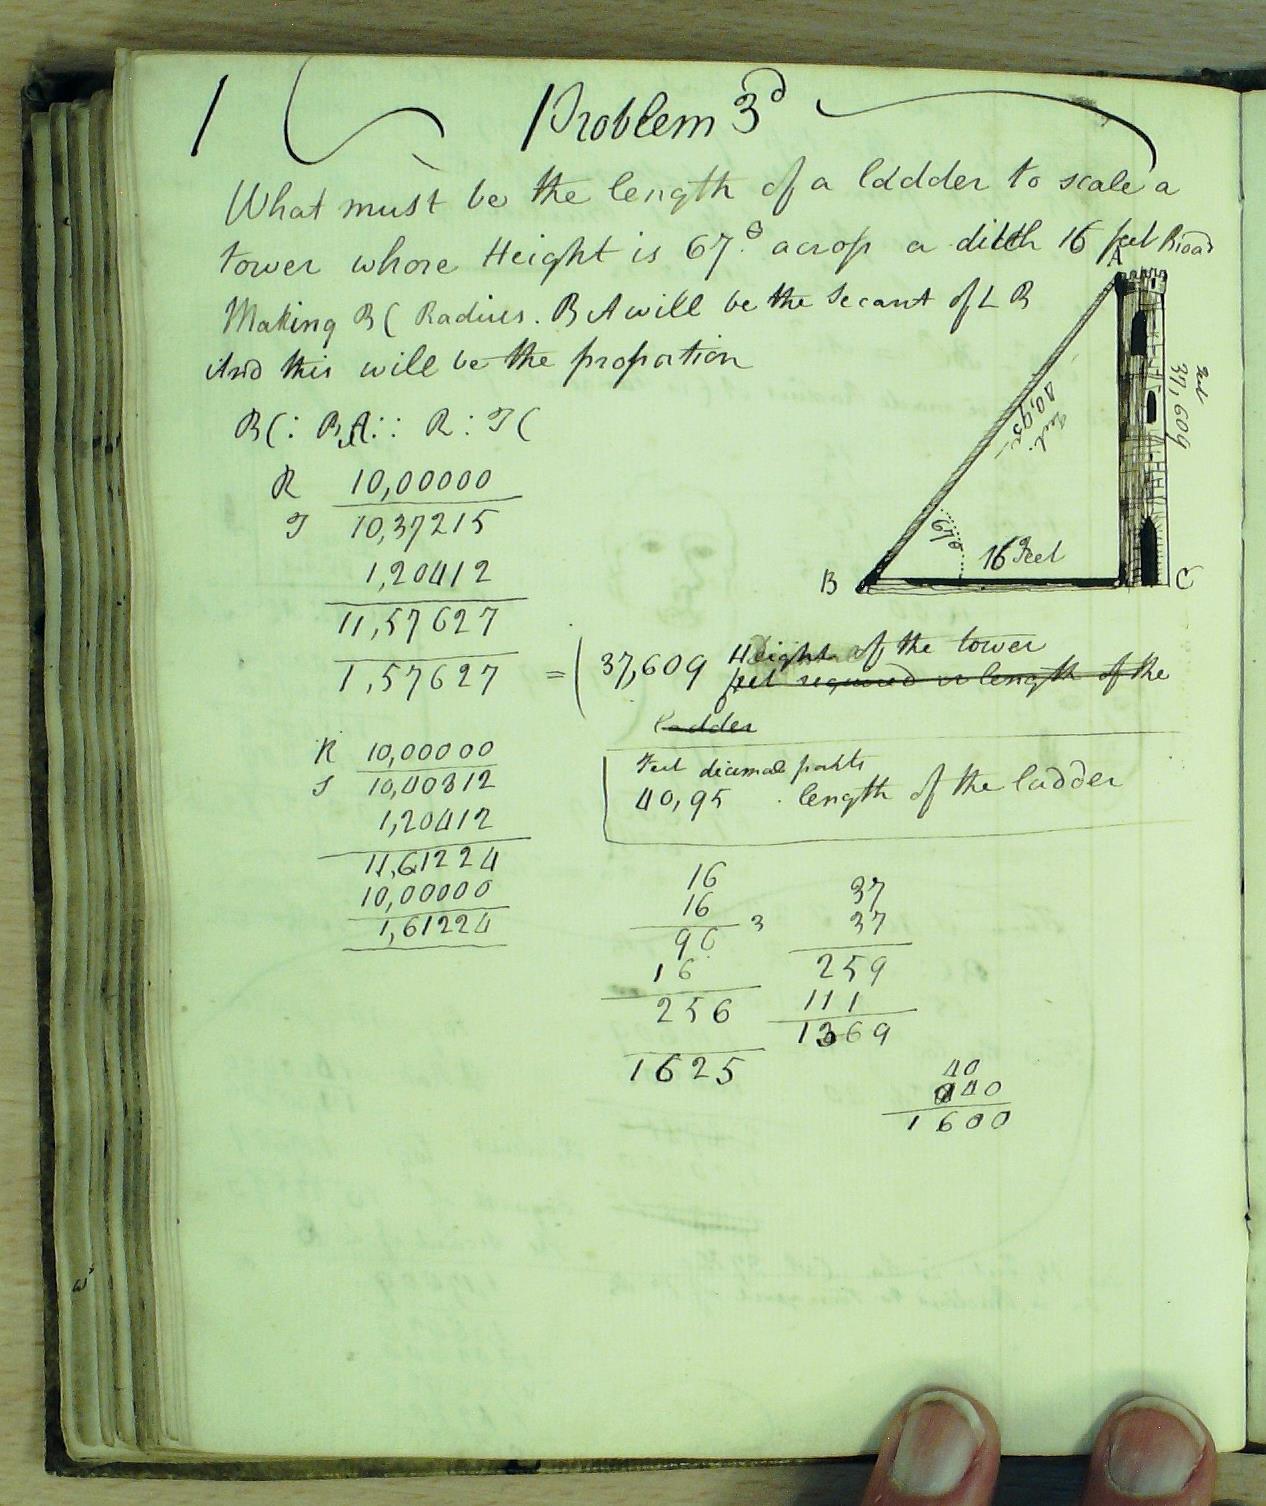 Problem 3d
What must be the length of a ladder to scale a
tower whose Height is 67.° across a ditch 16 feet Broad
Making BC Radius. BA will be the Secant of L B
And this will be the proportion
BC : BA :: R : T C
R 10,00000
T 10,37215
1,20412
11,57627
1,57627 = ( 37,609 Height of the tower
feet required or length of the
ladder
R 10,00000
S 10,40812
1,20412
11,61224
10,00000
1,61224
Feet decimal parts
40,95 . length of the ladder
A
40,95
Feet
37,609
67°
16 Feet
B
C
16
16
96 3
16
256
1625
37
37
259
111
1369
40
40
1600